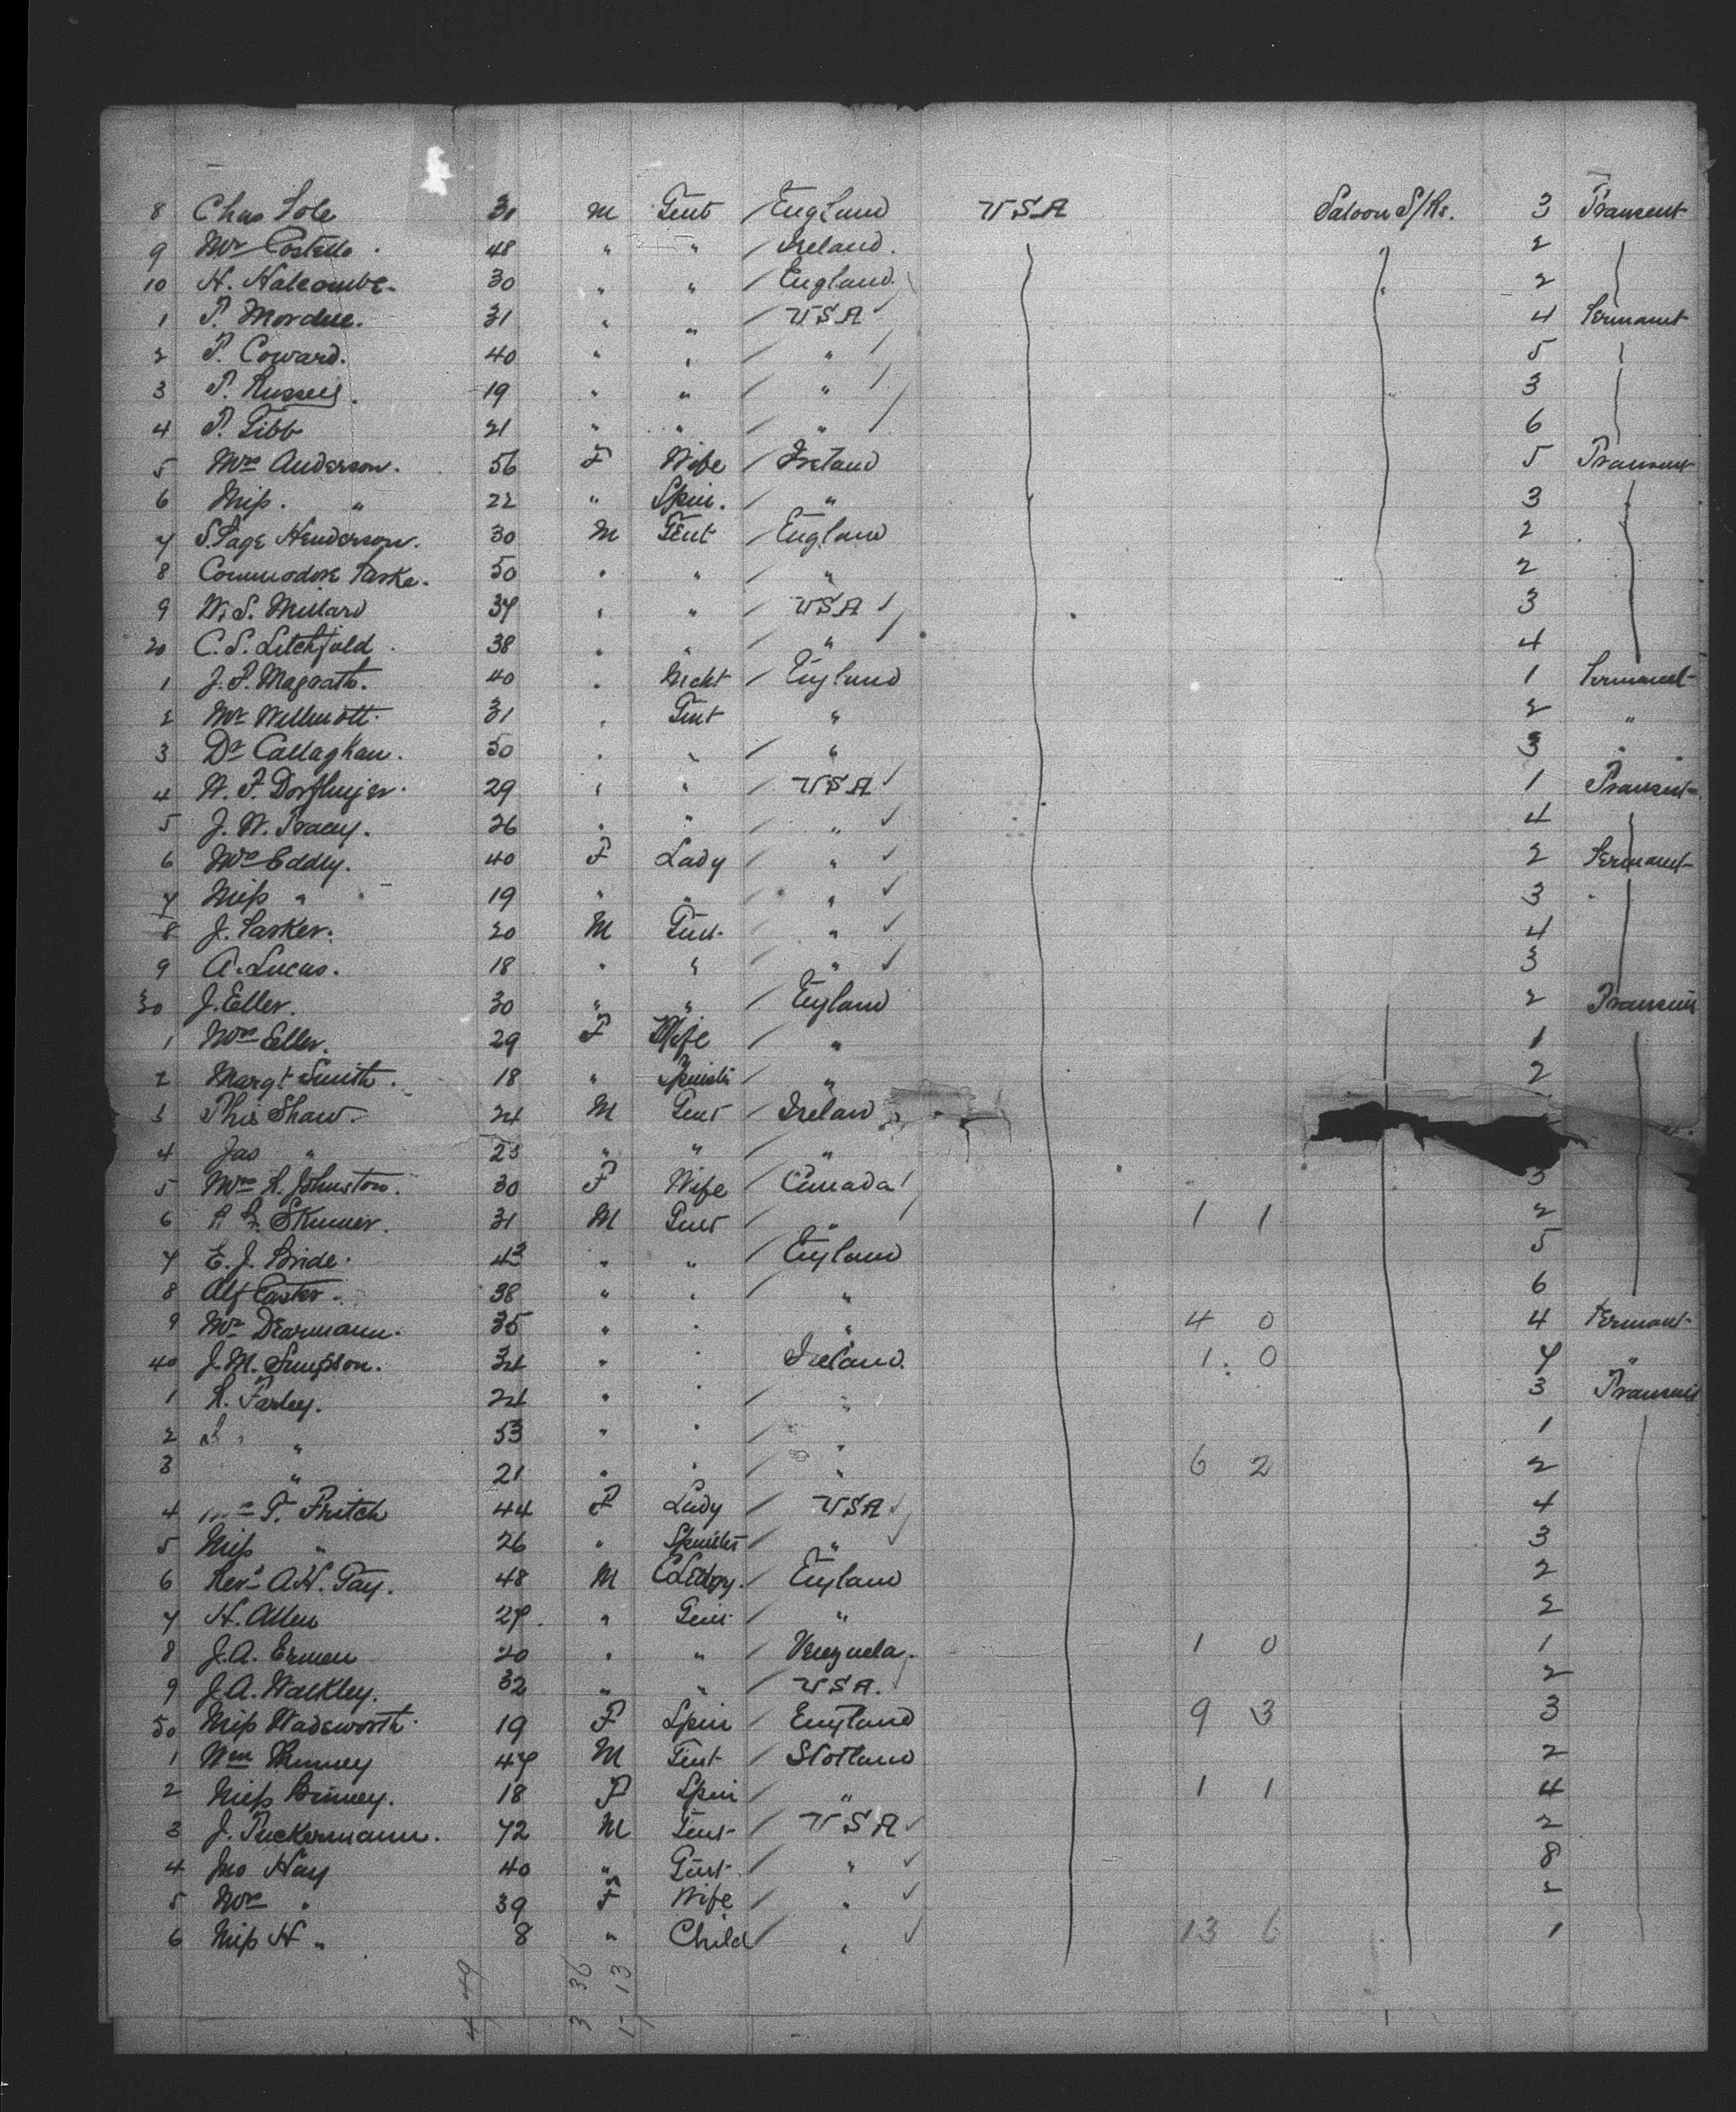 8 Chas Pole 31 M Gent / England USA Saloon S/Rs. 3 Transent
9 Mr Costello 48 " " / Ireland. 2
10 H. Halcombe. 30 " " / England. 2
1 T. Mordue. 31 " " / USA 4 Permanet
2 T. Coward. 40 " " / " 5
3 T. Russell. 19 " " / " 3
4 T. Gibb 21 " " / " 6
5 Mrs Anderson. 56 F Wife / Ireland 5 Transent
6 Miss. " 22 " Spin. / " 3
7 S. Page Henderson. 30 M Gent / England 2
8 Commodore 50 " " / " 2
9 W. S. Millard 37 " " / USA 3
20 C. S. Litchfield 38 " " / " 4
1 J. P. Magrath. 40 " Mcht / England 1 Permanent
2 Mr Willmott. 31 " Gent " 2 "
3 Dr Callaghan. 50 " " / " 3 "
4 W. F. Dorflinger. 29 " " / USA 1 Transent
5 J. W. Tracey. 26 " " / " 4
6 Mrs Eddy. 40 F Lady / " 2 Permanet
7 Miss " 19 " " / " 3 "
8 J. Parker. 20 M Gent / " 4
9 A. Lucas. 18 " " / " 3
30 J. Eller. 30 " " / England 2 Transent
1 Mrs Eller. 29 F Wife / " 1
2 Margt Smith. 18 " Spinster / " 2
3 Thos Shaw. 24 M Gent / Ireland
4 Jas " 23 " " / "
5 Mrs R. Johnston. 30 F Wife / Canada 3
6 Skinner. 31 M Gent / " 1 1 2
7 E. J. Bride. 43 " " / England 5
8 Alf Carter. 38 " " / " 6
9 Mr Dearmann. 35 " " " 4 0 4 Permant
40 J. M. Simpson. 34 " " Ireland. 1. 0 7 "
1 R. Farley. 24 " " / " 3 Transent
2 " 53 " " / " 1
3 " 21 " " / " 6 2 2
4 Mrs T. Fritch 44 F Lady / USA 4
5 Miss " 26 " Spinster / " 3
6 Revd A. H. Gay. 48 M Clergy. / England 2
7 H. Allen 27. " Gent / " 2
8 J. A. Ermen 20 " " / Venezuela. 1 0 1
9 J. A. Walkley. 32 " " / USA. 2
50 Miss Wadsworth. 19 F Spin / England 9 3 3
1 Wm Binney 47 M Gent / Scotland 2
2 Miss Binney. 18 F Spin / " 1 1 4
3 J. Tuckermann. 72 M Gent / USA 2
4 Jno Hay 40 " Gent. / " 8
5 Mrs " 39 F Wife / " 2
6 Miss H " 8 " Child / " 13 6 1
4 49
3 36
1 13